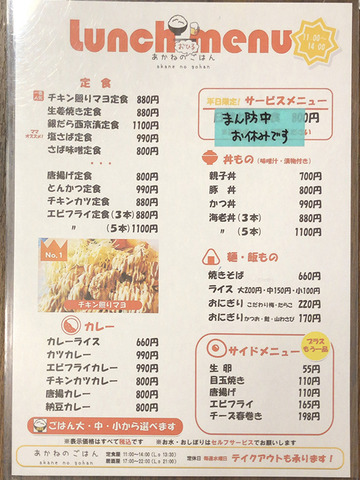 Lunch menu
おひる
あかねのごはん
akane no gohan
11:00
〜
14:00
定食
チキン照りマヨ定食 880円
生姜焼き定食 880円
銀だら西京漬定食 1100円
塩さば定食 990円
さば味噌定食 880円
唐揚げ定食 880円
とんかつ定食 990円
チキンカツ定食 880円
エビフライ定食(3本) 880円
〃 (5本) 1100円
No.1
チキン照りマヨ
カレー
カレーライス 660円
カツカレー 990円
エビフライカレー 990円
チキンカツカレー 880円
唐揚カレー 880円
納豆カレー 810円
ごはん大・中・小から選べます
平日限定! サービスメニュー
まん防中
お休みです
丼もの(味噌汁・漬物付き)
親子丼 700円
豚丼 880円
かつ丼 990円
海老丼(3本) 880円
〃 (5本) 1100円
麺・飯もの
焼きそば 660円
ライス 大200円・中150円・小100円
おにぎり こだわり梅・たらこ 220円
おにぎり かつお・鮭・山わさび 170円
サイドメニュー
プラス
もう一品
生卵 55円
目玉焼き 110円
唐揚げ 110円
エビフライ 165円
チーズ春巻き 198円
※表示価格はすべて税込です ※お水・おしぼりはセルフサービスでお願いします
あかねのごはん
akane no gohan
定食屋 11:00〜14:00 (L.o 13:30)
居酒屋 17:00〜22:00 (L.o 21:00)
定休日 毎週水曜日
テイクアウトも承ります!